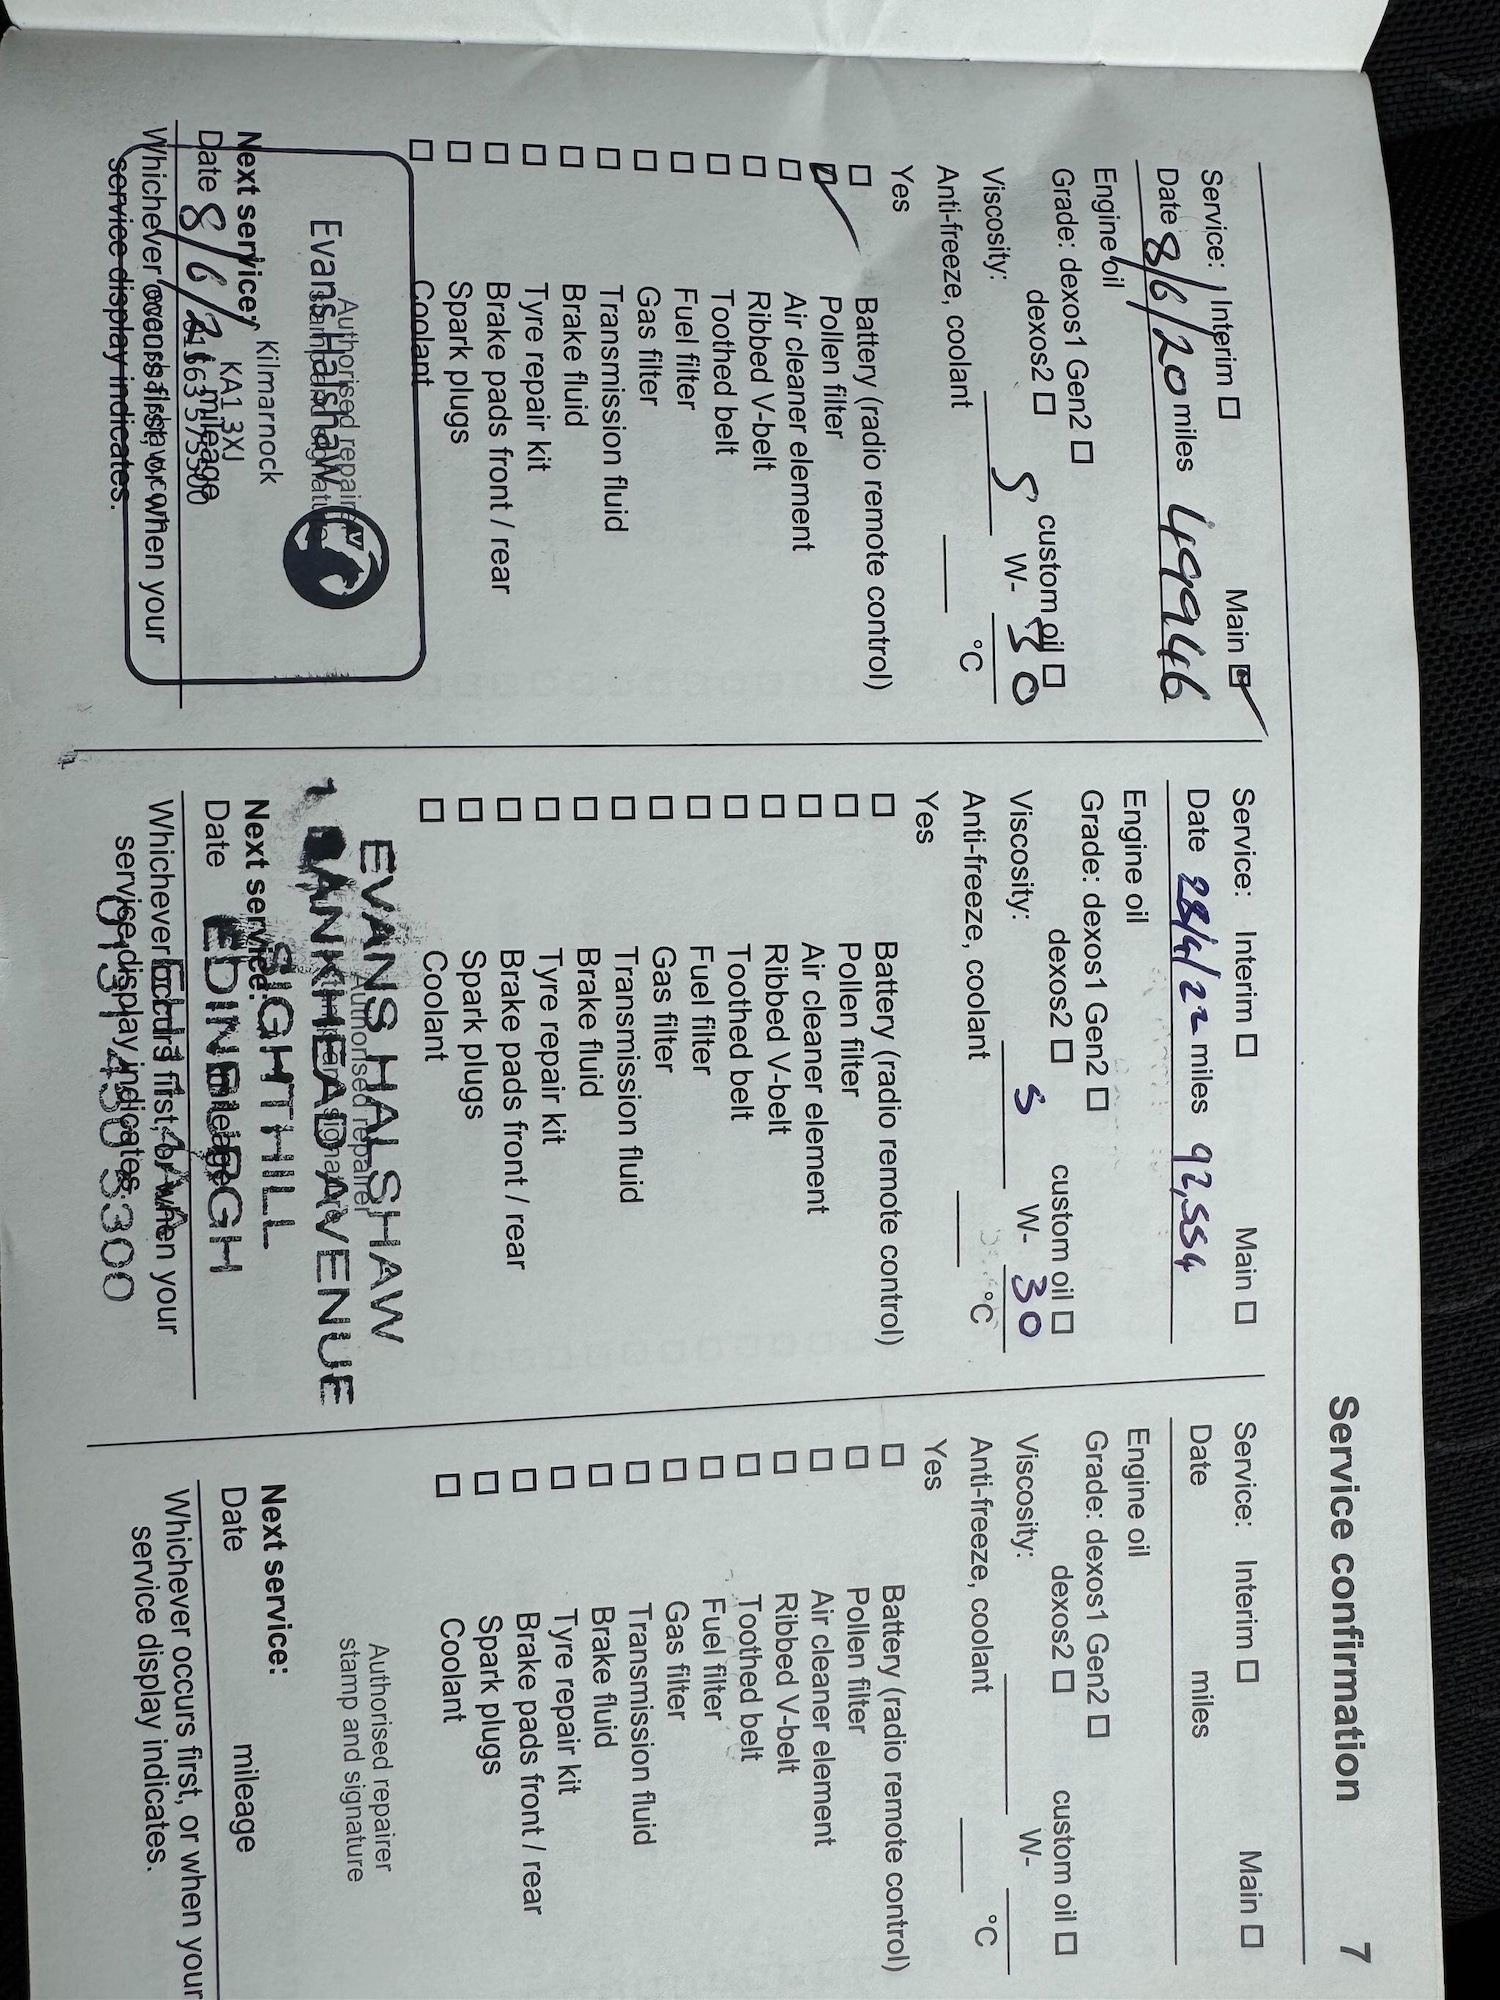 Service confirmation 7
Service: Interim ☐ Main ☑
Date 8/6/20 miles 49946
Engine oil
Grade: dexos1 Gen2 ☐
dexos2 ☐ custom oil ☐
Viscosity: 5 W- 30
Anti-freeze, coolant °C
Yes
☐ Battery (radio remote control)
☑ Pollen filter
☐ Air cleaner element
☐ Ribbed V-belt
☐ Toothed belt
☐ Fuel filter
☐ Gas filter
☐ Transmission fluid
☐ Brake fluid
☐ Tyre repair kit
☐ Brake pads front / rear
☐ Spark plugs
☐ Coolant
Authorised repairer
Evans Halshaw
Kilmarnock
Next service:
KA1 3XJ
Date 8/6/21 mileage
Whichever occurs first, or when your
service display indicates.
Service: Interim ☐ Main ☐
Date 28/4/22 miles 92,554
Engine oil
Grade: dexos1 Gen2 ☐
dexos2 ☐ custom oil ☐
Viscosity: 5 W- 30
Anti-freeze, coolant °C
Yes
☐ Battery (radio remote control)
☐ Pollen filter
☐ Air cleaner element
☐ Ribbed V-belt
☐ Toothed belt
☐ Fuel filter
☐ Gas filter
☐ Transmission fluid
☐ Brake fluid
☐ Tyre repair kit
☐ Brake pads front / rear
☐ Spark plugs
☐ Coolant
Authorised repairer
EVANS HALSHAW
BANKHEAD AVENUE
SIGHTHILL
Next service:
EDINBURGH
Date mileage
Whichever occurs first, or when your
service display indicates.
Service: Interim ☐ Main ☐
Date miles
Engine oil
Grade: dexos1 Gen2 ☐
dexos2 ☐ custom oil ☐
Viscosity: W-
Anti-freeze, coolant °C
Yes
☐ Battery (radio remote control)
☐ Pollen filter
☐ Air cleaner element
☐ Ribbed V-belt
☐ Toothed belt
☐ Fuel filter
☐ Gas filter
☐ Transmission fluid
☐ Brake fluid
☐ Tyre repair kit
☐ Brake pads front / rear
☐ Spark plugs
☐ Coolant
Authorised repairer
stamp and signature
Next service:
Date mileage
Whichever occurs first, or when your
service display indicates.